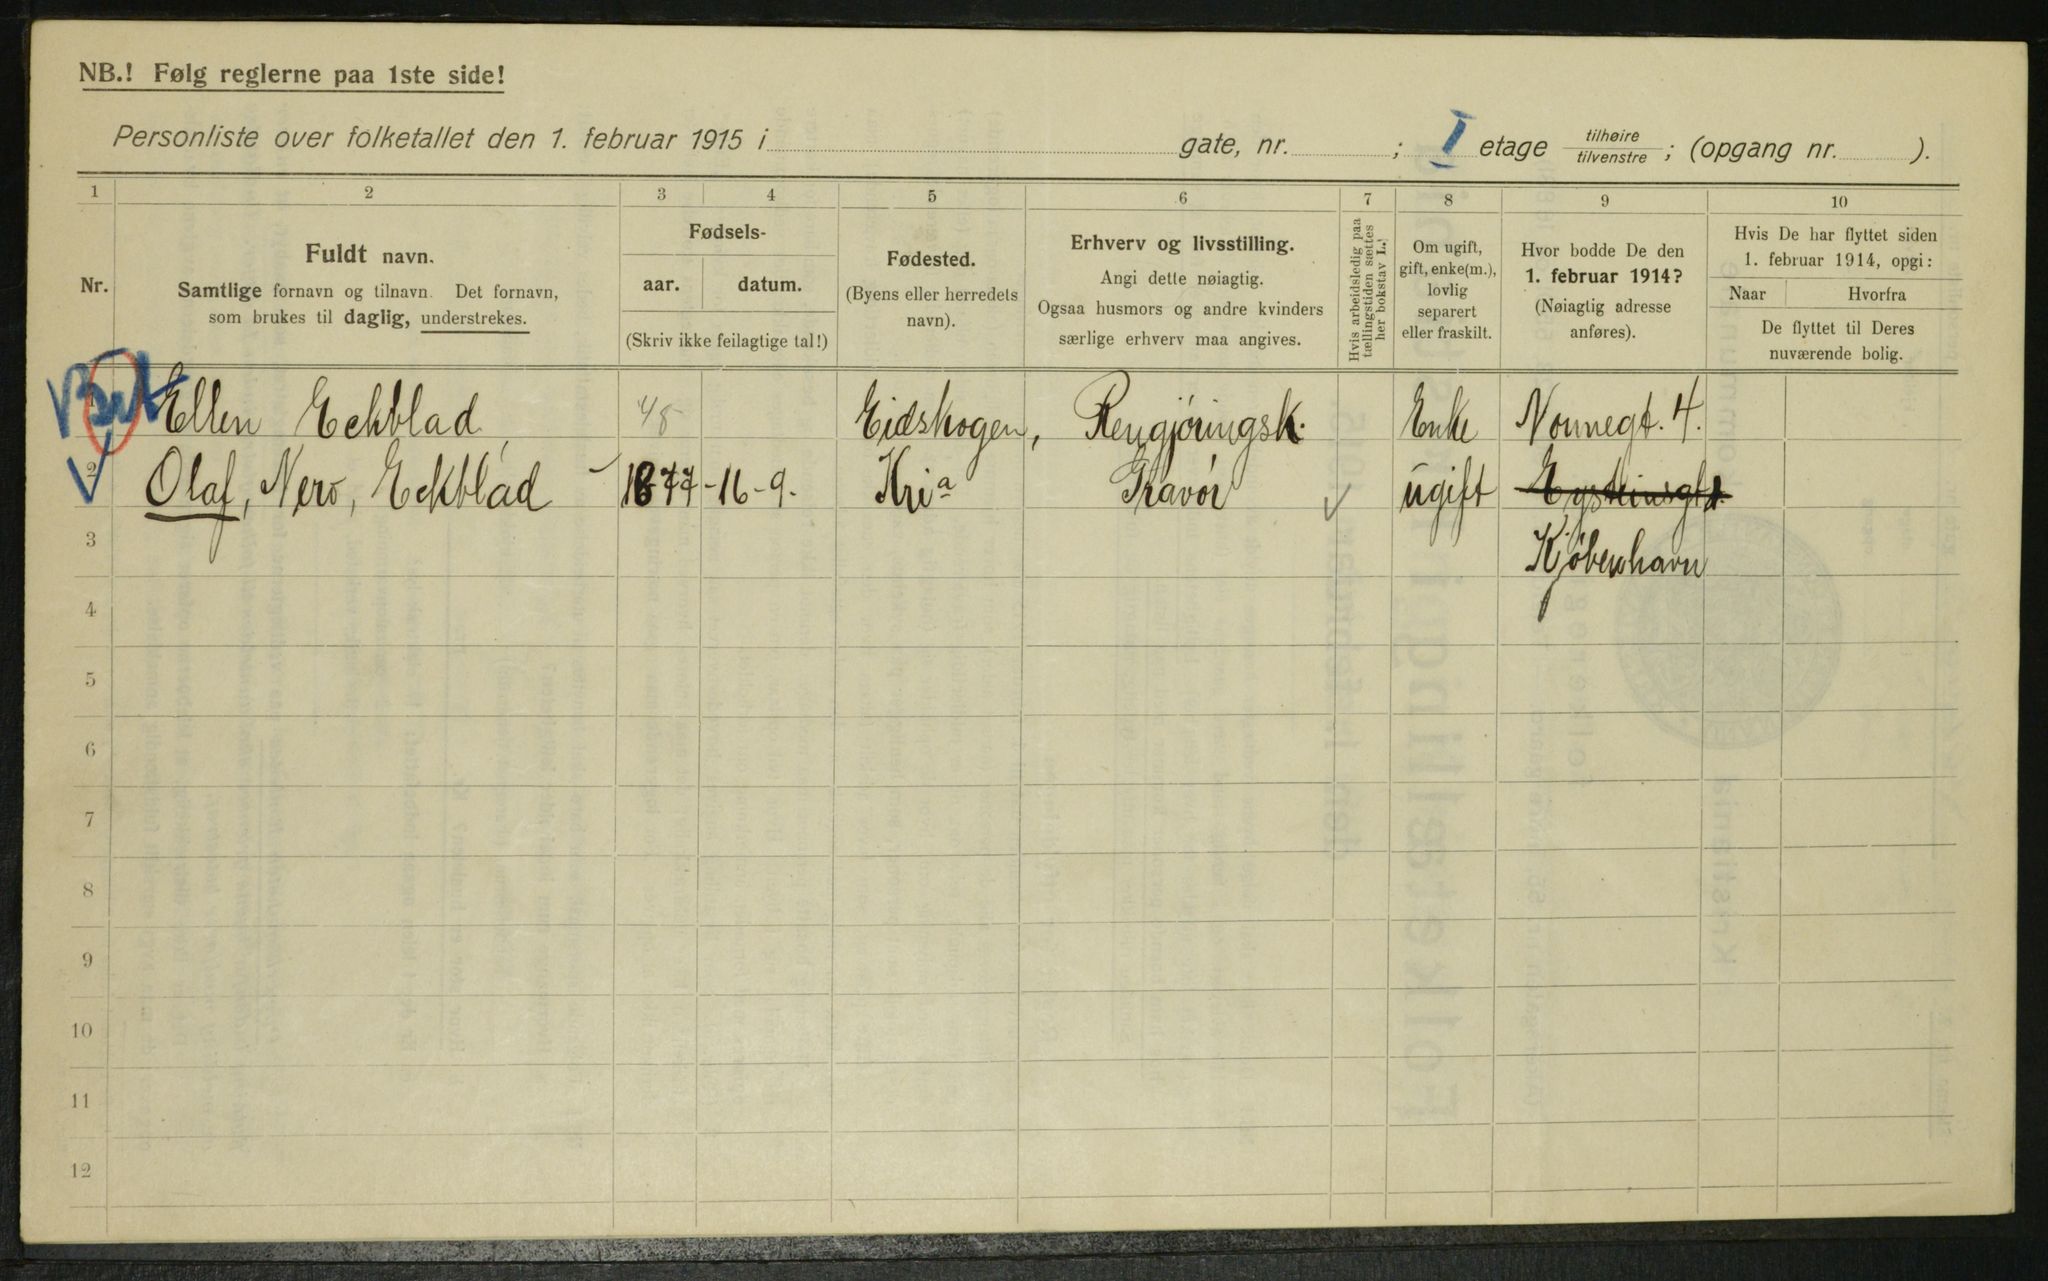 NB.! Følg reglerne paa 1ste side!
Personliste over folketallet den 1. februar 1915 i gate, nr. ; I etage tilhøire tilvenstre ; (opgang nr. ).
1 2 3 4 5 6 7 8 9 10
Nr.
Fuldt navn.
Samtlige fornavn og tilnavn. Det fornavn,
som brukes til daglig, understrekes.
Fødsels-
aar. datum.
(Skriv ikke feilagtige tal!)
Fødested.
(Byens eller herredets
navn).
Erhverv og livsstilling.
Angi dette nøiagtig.
Ogsaa husmors og andre kvinders
særlige erhverv maa angives.
Hvis arbeidsledig paa
tællingstiden sættes
her bokstav L.!
Om ugift,
gift, enke(m.),
lovlig
separert
eller fraskilt.
Hvor bodde De den
1. februar 1914?
(Nøiagtig adresse
anføres).
Hvis De har flyttet siden
1. februar 1914, opgi:
Naar Hvorfra
De flyttet til Deres
nuværende bolig.
1 Ellen Eckblad 48 Eidskogen, Rengjøringsk. Enke Nonnegt. 4.
2 Olaf, Nero, Eckblad 1877 -16-9. Kria Gravør ugift Eysteinsgt
3 Kjøbenhavn
4
5
6
7
8
9
10
11
12